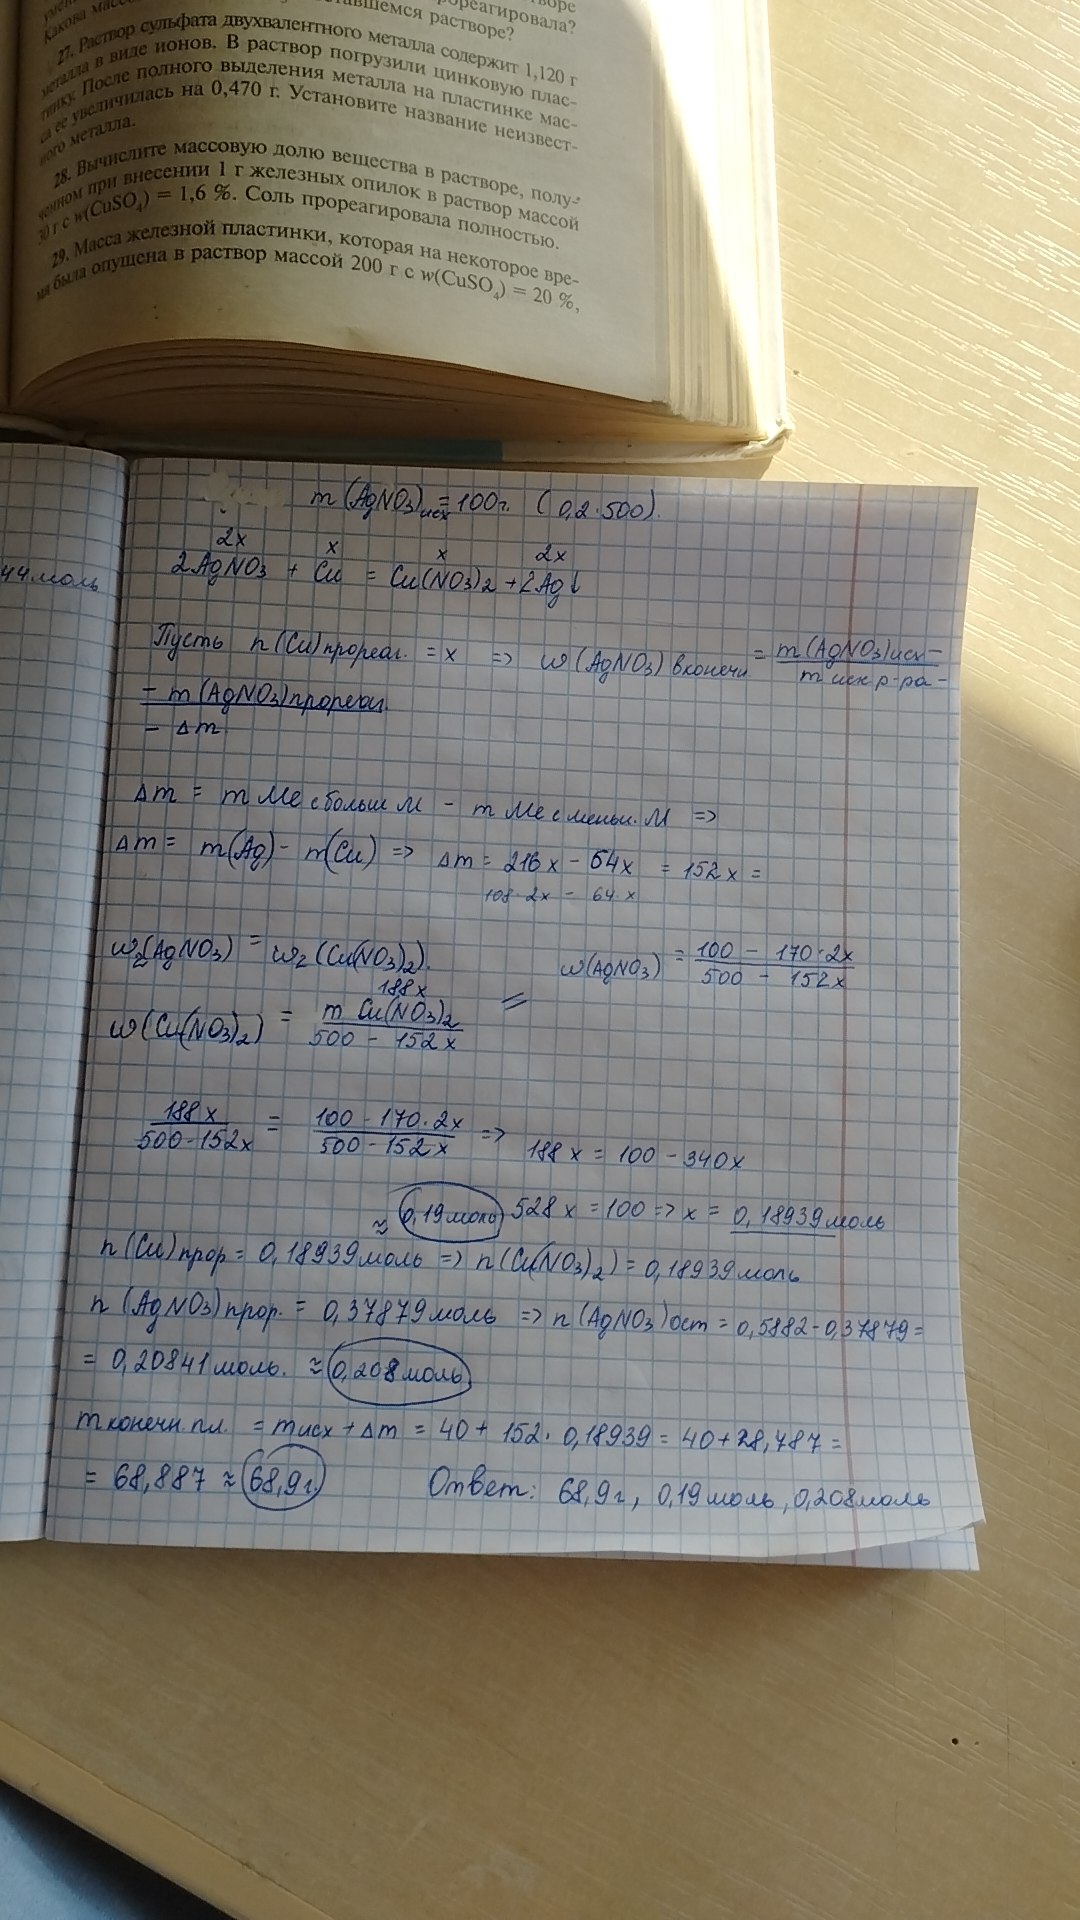 прореагировала?
Какова масс оставшемся растворе?
27. Раствор сульфата двухвалентного металла содержит 1,120 г
металла в виде ионов. В раствор погрузили цинковую плас-
тинку. После полного выделения металла на пластинке мас-
са ее увеличилась на 0,470 г. Установите название неизвест-
ного металла.
28. Вычислите массовую долю вещества в растворе, полу-
ченном при внесении 1 г железных опилок в раствор массой
30 г с w(CuSO₄) = 1,6 %. Соль прореагировала полностью.
29. Масса железной пластинки, которая на некоторое вре-
мя была опущена в раствор массой 200 г с w(CuSO₄) = 20 %,
44 моль
m (AgNO3)исх = 100г. (0,2·500).
2x x x 2x
2AgNO3 + Cu = Cu(NO3)2 + 2Ag↓
Пусть n(Cu)прореаг. = x => ω(AgNO3) в конечн = m(AgNO3)исх –
m исх р-ра –
– m(AgNO3)прореаг.
– Δm
Δm = m Me с больш M – m Me с меньш. M =>
Δm = m(Ag) – m(Cu) => Δm = 216x – 64x = 152x =
108·2x – 64·x
ω2(AgNO3) = ω2(Cu(NO3)2).
ω(AgNO3) = 100 – 170·2x
500 – 152x
188x
ω(Cu(NO3)2) = m Cu(NO3)2
500 – 152x
=
188x = 100 – 170·2x => 188x = 100 – 340x
500 – 152x 500 – 152x
≈ 0,19моль 528x = 100 => x = 0,18939моль
n(Cu)прор = 0,18939моль => n(Cu(NO3)2) = 0,18939моль
n(AgNO3)прор. = 0,37879моль => n(AgNO3)ост = 0,5882-0,37879 =
= 0,20841моль. ≈ 0,208моль
m конечн. пл. = m исх + Δm = 40 + 152·0,18939 = 40+28,787 =
= 68,887 ≈ 68,9г. Ответ: 68,9г, 0,19моль, 0,208моль